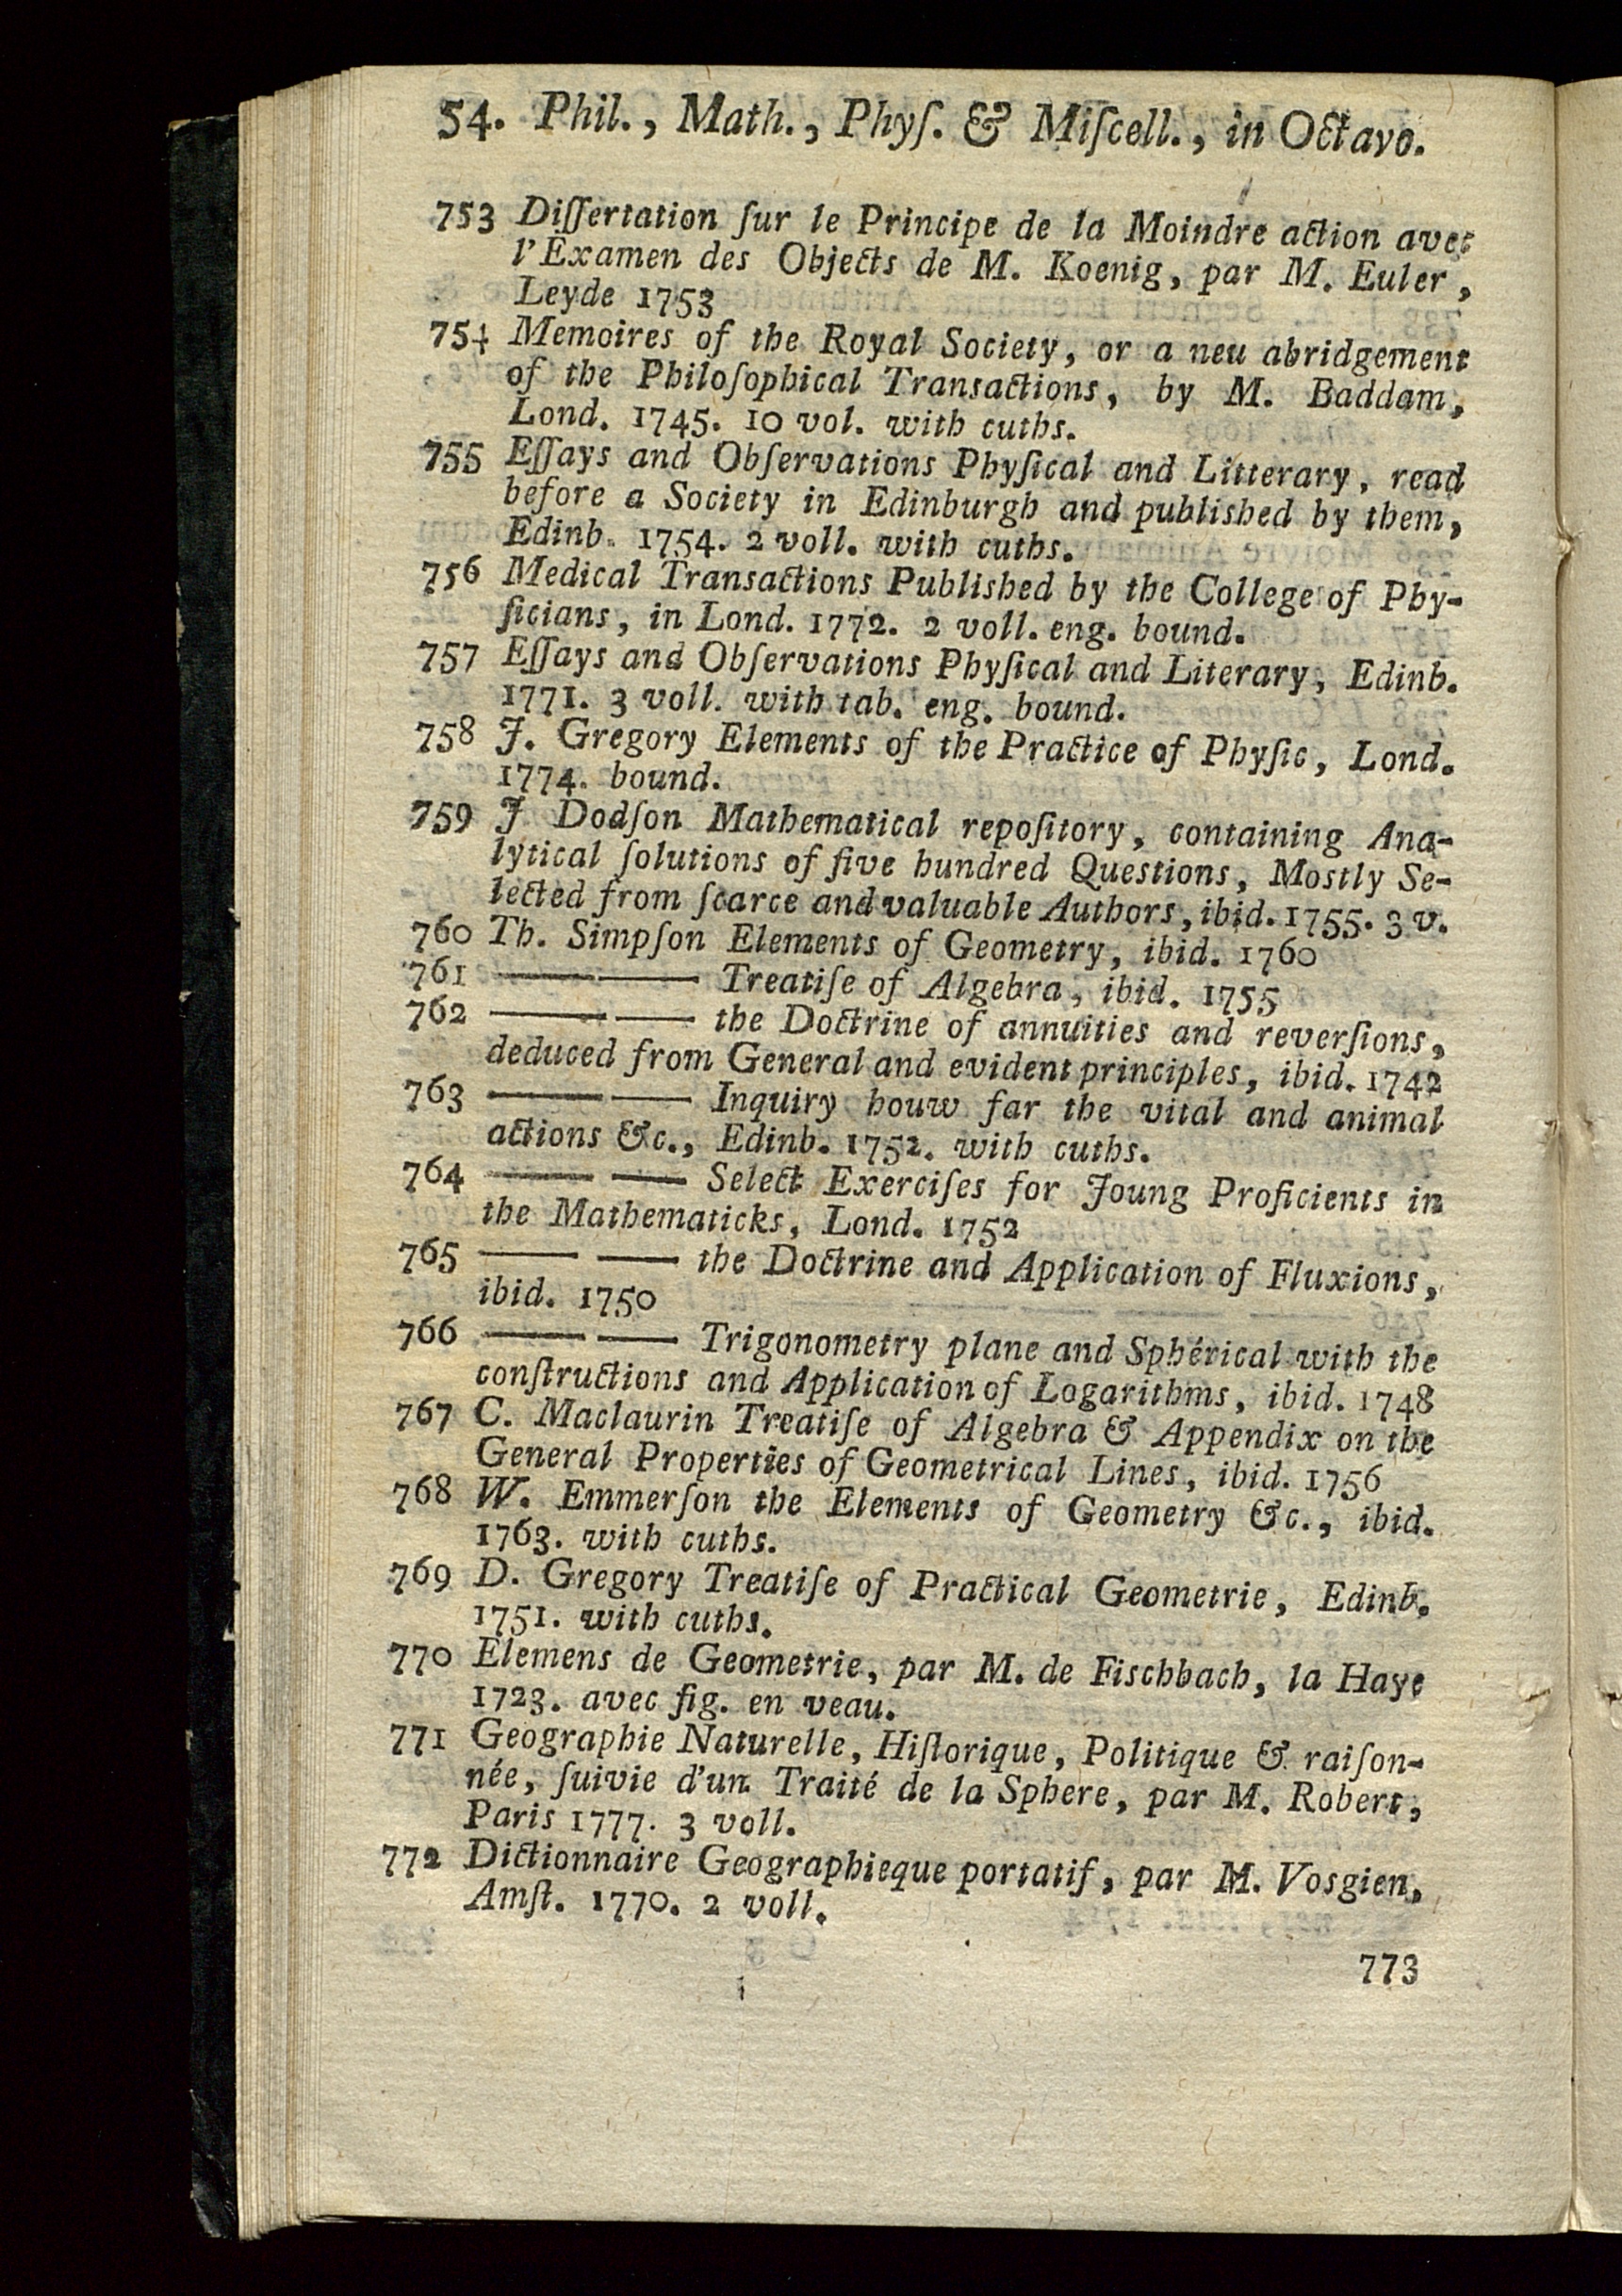 54. Phil., Math., Phyſ. & Miſcell., in Octavo.
753 Diſſertation ſur le Principe de la Moindre action avec
l'Examen des Objects de M. Koenig, par M. Euler,
Leyde 1753
754 Memoires of the Royal Society, or a neu abridgement
of the Philoſophical Transactions, by M. Baddam,
Lond. 1745. 10 vol. with cuths.
755 Eſſays and Obſervations Phyſical and Litterary, read
before a Society in Edinburgh and published by them,
Edinb. 1754. 2 voll. with cuths.
756 Medical Transactions Published by the College of Phy-
ſicians, in Lond. 1772. 2 voll. eng. bound.
757 Eſſays and Obſervations Phyſical and Literary, Edinb.
1771. 3 voll. with tab. eng. bound.
758 J. Gregory Elements of the Practice of Phyſic, Lond.
1774. bound.
759 J Dodſon Mathematical repoſitory, containing Ana-
lytical ſolutions of five hundred Questions, Mostly Se-
lected from ſcarce and valuable Authors, ibid. 1755. 3 v.
760 Th. Simpſon Elements of Geometry, ibid. 1760
761 —— —— Treatiſe of Algebra, ibid. 1755
762 —— —— the Doctrine of annuities and reverſions,
deduced from General and evident principles, ibid. 1742
763 —— —— Inquiry houw far the vital and animal
actions &c., Edinb. 1752. with cuths.
764 —— —— Select Exerciſes for Joung Proficients in
the Mathematicks, Lond. 1752
765 —— —— the Doctrine and Application of Fluxions,
ibid. 1750
766 —— —— Trigonometry plane and Sphérical with the
conſtructions and Application of Logarithms, ibid. 1748
767 C. Maclaurin Treatiſe of Algebra & Appendix on the
General Properties of Geometrical Lines, ibid. 1756
768 W. Emmerſon the Elements of Geometry &c., ibid.
1763. with cuths.
769 D. Gregory Treatiſe of Practical Geometrie, Edinb.
1751. with cuths.
770 Elemens de Geometrie, par M. de Fischbach, la Haye
1723. avec fig. en veau.
771 Geographie Naturelle, Hiſtorique, Politique & raiſon-
née, ſuivie d'un Traité de la Sphere, par M. Robert,
Paris 1777. 3 voll.
772 Dictionnaire Geographieque portatif, par M. Vosgien,
Amſt. 1770. 2 voll.
773